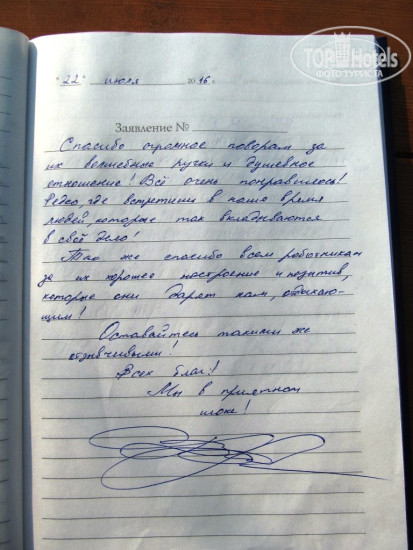 TOPHotels
ФОТО ТУРИСТА
"22" июля 2016 г.
Заявление №
Спасибо огромное поворам за
их волшебные ручки и душевное
отношение! Всё очень понравилось!
Редко, где встретишь в наше время
людей, которые так вкладываются
в своё дело!
Так же спасибо всем работникам
за их хорошее настроение и позитив,
которые они дарят нам, отдыхаю-
щим!
Оставайтесь такими же
отзывчивыми!
Всех благ!!
Мы в приятном
шоке!